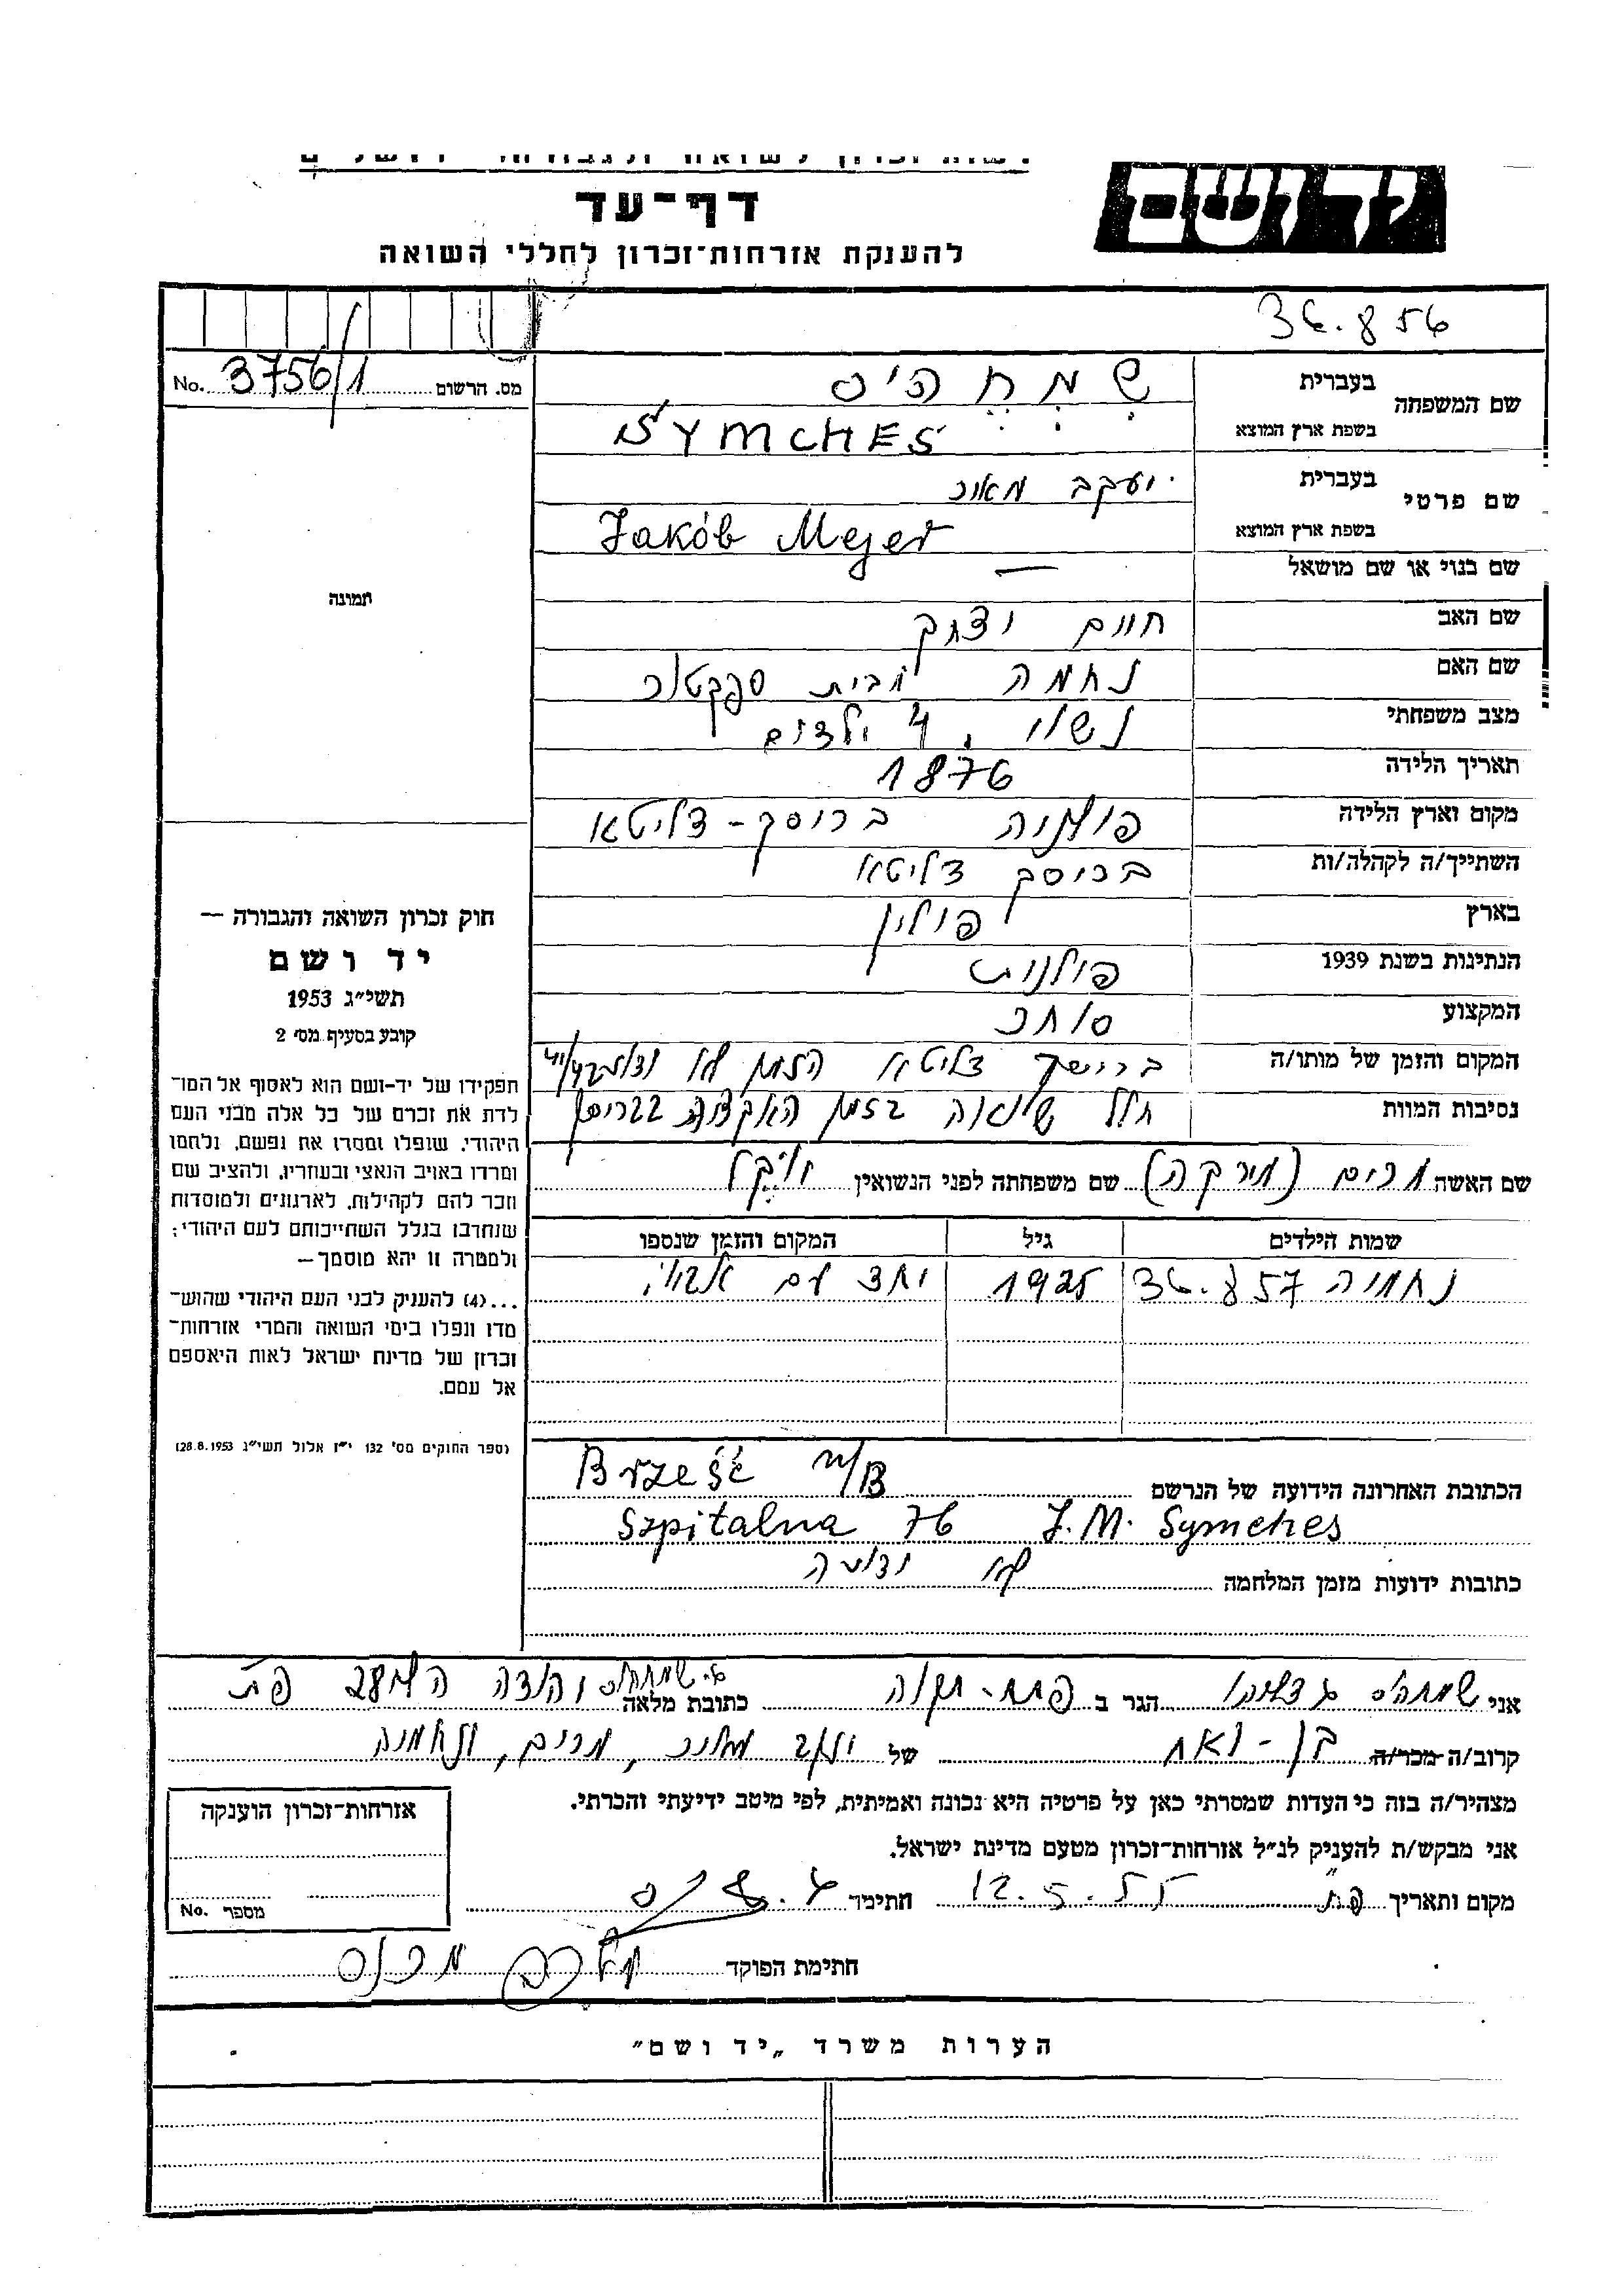 יד ושם
דף־עד
להענקת אזרחות־זכרון לחללי השואה
36.856
מס. הרשום 3756/1 No.
שם המשפחה
בעברית שמחהיס
בשפת ארץ המוצא SYMCHES
שם פרטי
בעברית יעקב מאיר
בשפת ארץ המוצא Jakób Mejer
שם בנוי או שם מושאל —
שם האב חיים יצחק
שם האם נחמה מבית ספקטור
מצב משפחתי נשוי, 4 ילדים
תאריך הלידה 1876
מקום וארץ הלידה פולניה בריסק-דליטא
השתייך/ה לקהלה/ות בריסק דליטא
בארץ פולין
הנתינות בשנת 1939 פולנית
המקצוע סוחר
המקום והזמן של מותו/ה בריסק דליטא הזמן לא
נסיבות המוות חלל שואה בזמן האקציות בבריסק
שם האשה מרים (מירקה) שם משפחתה לפני הנשואין
שמות הילדים גיל המקום והזמן שנספו
נחמיה 36.857 1925 יחד עם אביו
הכתובת האחרונה הידועה של הנרשם Brześć n/B
Szpitalna 76 J.M. Symches
כתובות ידועות מזמן המלחמה לא ידועה
תמונה
חוק זכרון השואה והגבורה —
יד ושם
תשי״ג 1953
קובע בסעיף מס׳ 2
תפקידו של יד-ושם הוא לאסוף אל המו־
לדת את זכרם של כל אלה מבני העם
היהודי, שנפלו ומסרו את נפשם, נלחמו
ומרדו באויב הנאצי ובעוזריו, ולהציב שם
וזכר להם לקהילות, לארגונים ולמוסדות
שנחרבו בגלל השתייכותם לעם היהודי;
ולמטרה זו יהא מוסמך—
...(4) להעניק לבני העם היהודי שהוש־
מדו ונפלו בימי השואה והמרי אזרחות־
זכרון של מדינת ישראל לאות היאספם
אל עמם.
(ספר החוקים מס׳ 132 י״ז אלול תשי״ג 28.8.1953)
אני שמחהס גדליהו הגר ב פתח-תקוה כתובת מלאה
קרוב/ה מכר/ה בן-אח של יעקב מאיר, מרים, נחמיה
מצהיר/ה בזה כי העדות שמסרתי כאן על פרטיה היא נכונה ואמיתית, לפי מיטב ידיעתי והכרתי.
אני מבקש/ת להעניק לנ״ל אזרחות־זכרון מטעם מדינת ישראל.
מקום ותאריך פ״ת 12.5.55 חתימה
חתימת הפוקד
אזרחות־זכרון הוענקה
מספר No.
הערות משרד „יד ושם״